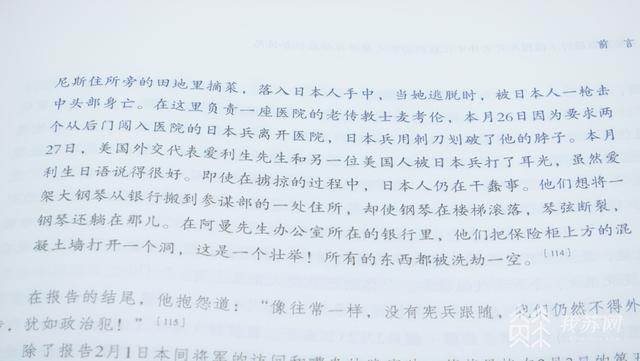 前 言
尼斯住所旁的田地里摘菜，落入日本人手中，当她逃脱时，被日本人一枪击
中头部身亡。在这里负责一座医院的老传教士麦考伦，本月26日因为要求两
个从后门闯入医院的日本兵离开医院，日本兵用刺刀划破了他的脖子。本月
27日，美国外交代表爱利生先生和另一位美国人被日本兵打了耳光，虽然爱
利生日语说得很好。即使在掳掠的过程中，日本人仍在干蠢事。他们想将一
架大钢琴从银行搬到参谋部的一处住所，却使钢琴在楼梯滚落，琴弦断裂，
钢琴还躺在那儿。在阿曼先生办公室所在的银行里，他们把保险柜上方的混
凝土墙打开一个洞，这是一个壮举！所有的东西都被洗劫一空。[114]
在报告的结尾，他抱怨道：“像往常一样，没有宪兵跟随，我们仍然不得外
，犹如政治犯！”[115]
除了报告2月1日本间将军的访问和
我苏网